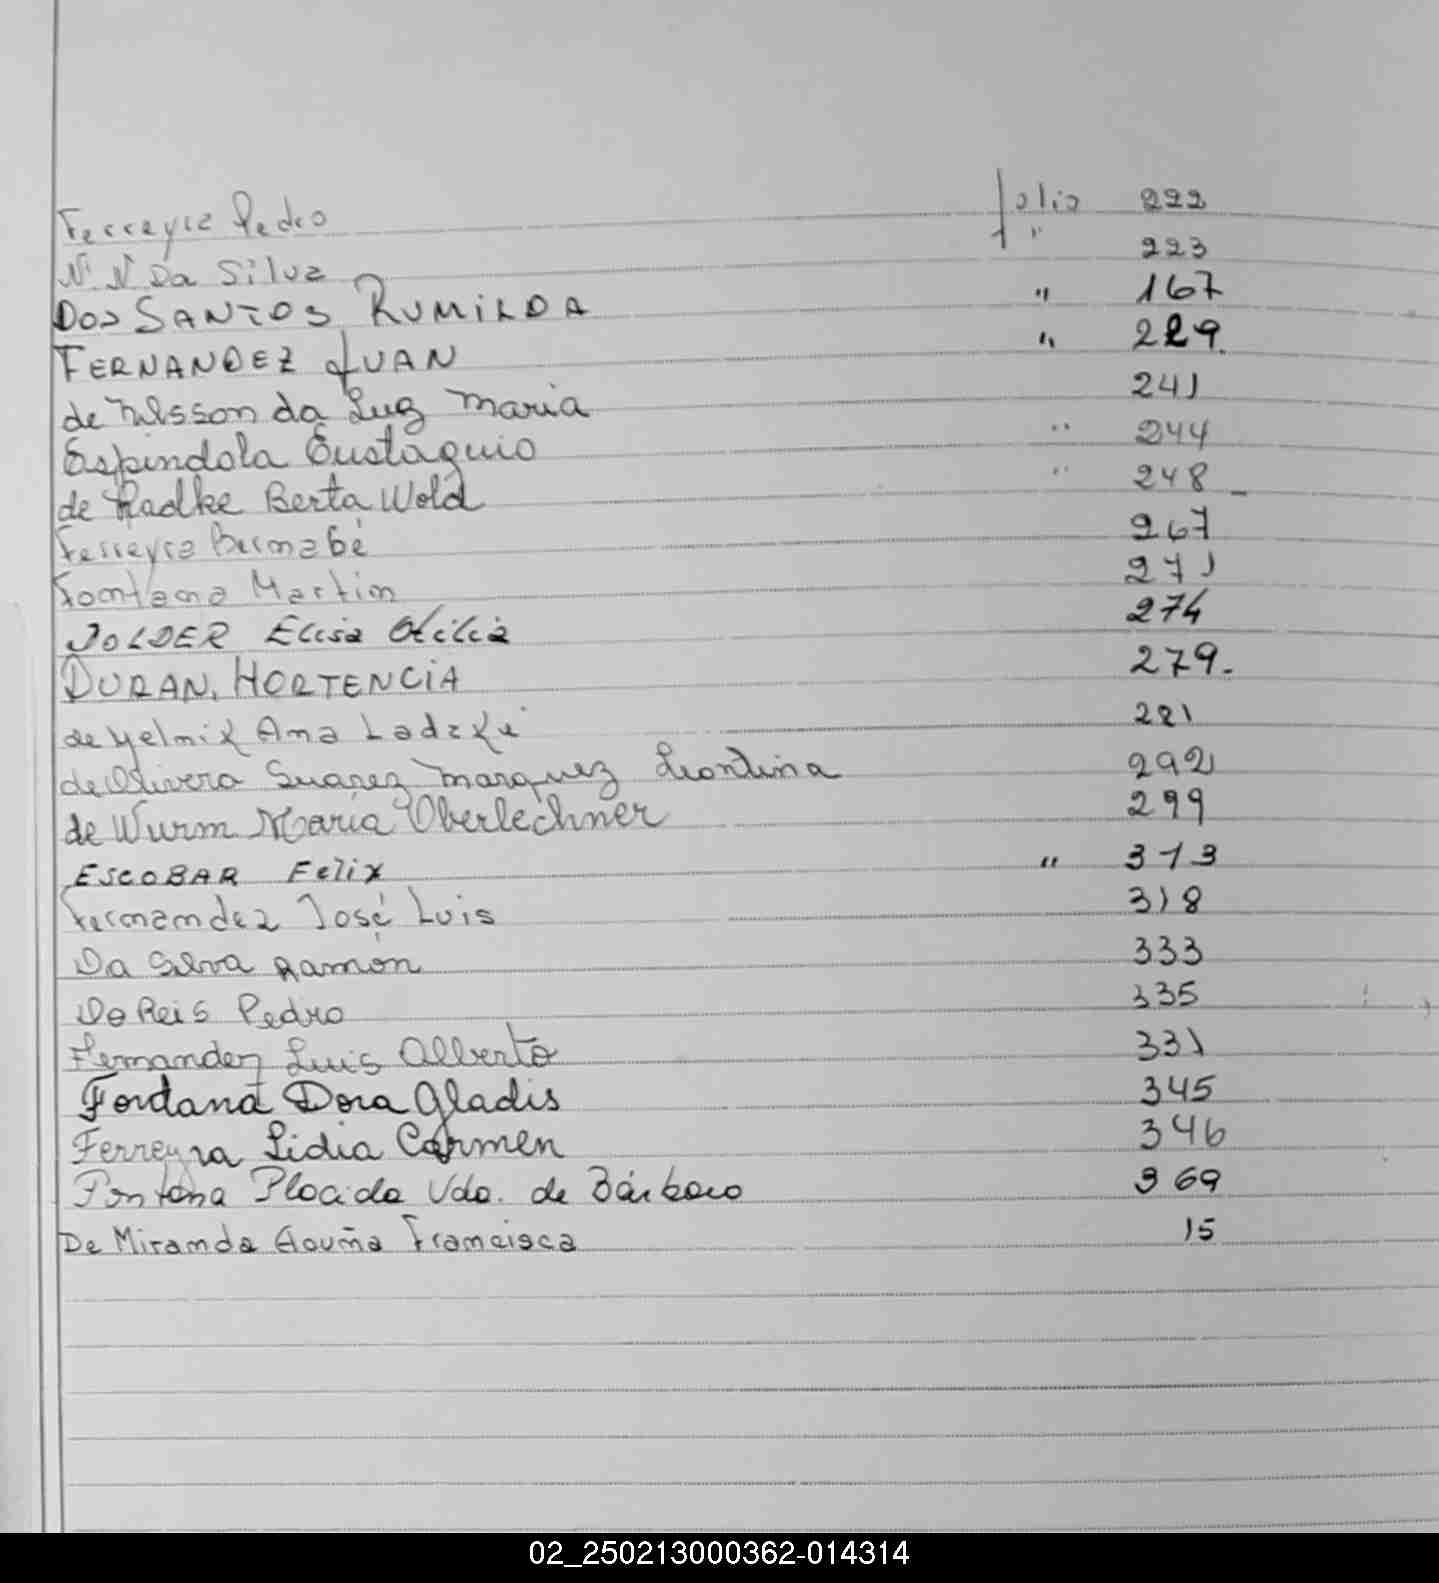 Ferreyra Pedro folio 222
N. N Da Silva " 223
DOS SANTOS RUMILDA " 167
FERNANDEZ JUAN " 229.
de Nilsson da Luz Maria 241
Espindola Eustaquio " 244
de Radke Berta Wold " 248
Ferreyra Bernabé 267
Fontana Martin 271
DOLDER Elisa Otilia 274
DURAN, HORTENCIA 279.
de Yelnik Ana Ladzki 281
de Olivera Suarez Marquez Leontina 292
de Wurm Maria Oberlechner 299
ESCOBAR Felix " 313
Fernandez José Luis 318
Da Silva Ramón 333
Do Reis Pedro 335
Fernandez Luis Alberto 331
Fontana Dora Gladis 345
Ferreyra Lidia Carmen 346
Fontana Placida Vda. de Bárbaro 369
De Miranda Acuña Francisca 15
02_250213000362-014314